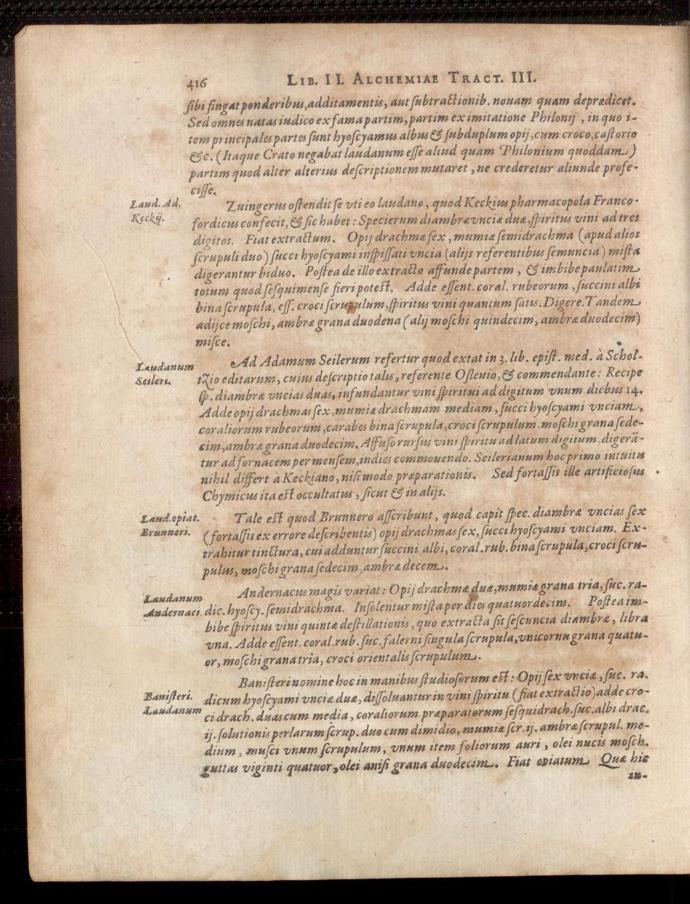 416 LIB. II. ALCHEMIAE TRACT. III.
sibi fingat ponderibus, additamentis, aut subtractionib. nouam quam deprædicet.
Sed omnes natas iudico ex fama partim, partim ex imitatione Philonij, in quo i-
tem principales partes sunt hyoscyamus albus & subduplum opij, cum croco, castorio
&c. (Itaque Crato negabat laudanum esse aliud quam Philonium quoddam)
partim quod alter alterius descriptionem mutaret, ne crederetur aliunde profe-
cisse.
Laud. Ad.
Keckij.
Zuingerus ostendit se vti eo laudano, quod Keckius pharmacopola Franco-
fordicus confecit, & sic habet: Specierum diambræ vnciæ duæ, spiritus vini ad tres
digitos. Fiat extractum. Opij drachmæ sex, mumiæ semidrachma (apud alios
scrupuli duo) succi hyoscyami inspissati vncia (alijs referentibus semuncia) mista
digerantur biduo. Postea de illo extracto affunde partem, & imbibe paulatim
totum quod sesquimense fieri potest. Adde essent. coral. rubeorum, succini albi
bina scrupula, ess. croci scrupulum, spiritus vini quantum satis. Digere. Tandem
adijce moschi, ambræ grana duodena (alij moschi quindecim, ambræ duodecim)
misce.
Laudanum
Seileri.
Ad Adamum Seilerum refertur quod extat in 3. lib. epist. med. à Schol-
tzio editarum, cuius descriptio talis, referente Osleuio, & commendante: Recipe
sp. diambræ vncias duas, infundantur vini spiritui ad digitum vnum diebus 14.
Adde opij drachmas sex, mumiæ drachmam mediam, succi hyoscyami vnciam,
coraliorum rubeorum, carabes bina scrupula, croci scrupulum. moschi grana sede-
cim, ambræ grana duodecim. Affuso rursus vini spiritu ad latum digitum. digerā-
tur ad fornacem per mensem, indies commouendo. Seilerianum hoc primo intuitu
nihil differt a Keckiano, nisi modo præparationis. Sed fortassis ille artificiosus
Chymicus ita est occultatus, sicut & in alijs.
Laud. opiat.
Brunneri.
Tale est quod Brunnero asscribunt, quod capit spec. diambræ vncias sex
(fortassis ex errore describentis) opij drachmas sex, succi hyoscyami vnciam. Ex-
trahitur tinctura, cui adduntur succini albi, coral. rub. bina scrupula, croci scru-
pulus, moschi grana sedecim, ambræ decem.
Laudanum
Andernaci.
Andernacus magis variat: Opij drachmæ duæ, mumiæ grana tria, suc. ra-
dic. hyoscy. semidrachma. Insolentur mista per dies quatuordecim. Postea im-
bibe spiritus vini quintæ destillationis, quo extracta sit sescuncia diambræ, libra
vna. Adde essent. coral. rub. suc. falerni singula scrupula, vnicornu grana quatu-
or, moschi grana tria, croci orientalis scrupulum.
Banisteri.
Laudanum
Banisteri nomine hoc in manibus studiosorum est: Opij sex vnciæ, suc. ra-
dicum hyoscyami vnciæ duæ, dissoluantur in vini spiritu (fiat extractio) adde cro-
ci drach. duas cum media, coraliorum præparatorum sesquidrach. suc. albi drac.
ij. solutionis perlarum scrup. duo cum dimidio, mumiæ scr. ij. ambræ scrupul. me-
dium, musci vnum scrupulum, vnum item foliorum auri, olei nucis mosch.
guttas viginti quatuor, olei anisi grana duodecim. Fiat opiatum. Quæ hic
in-